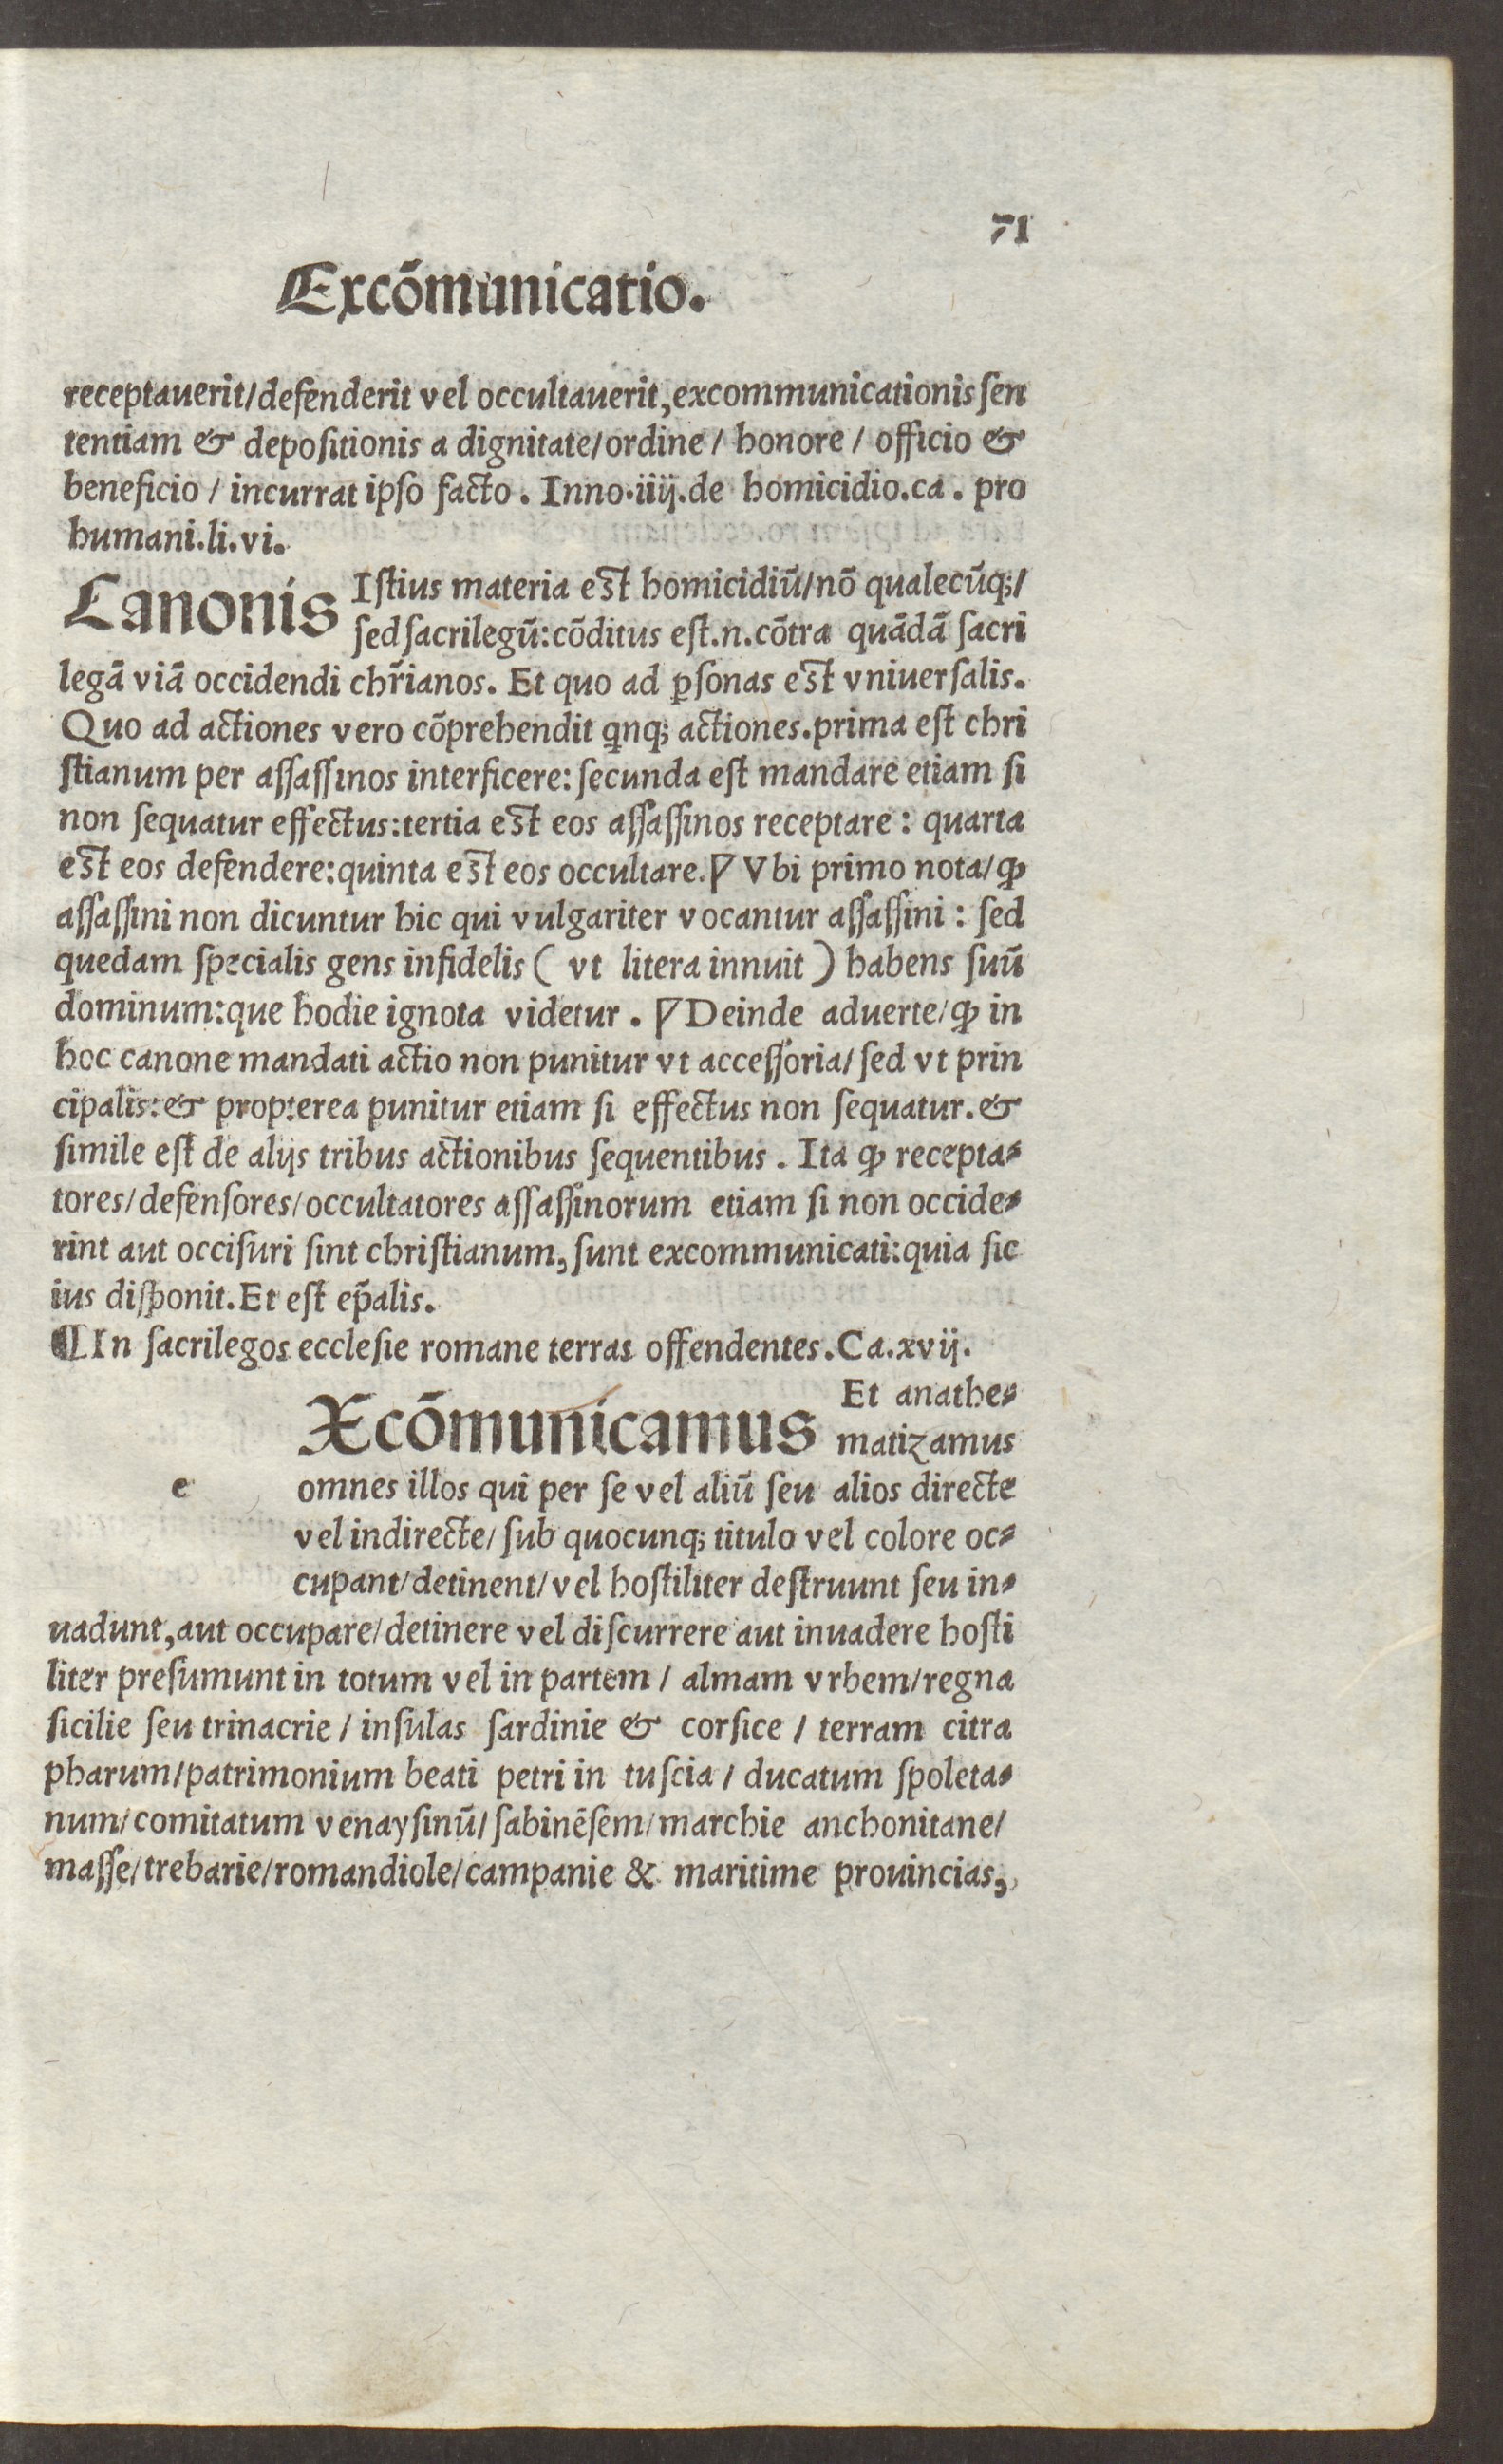 71
Excõmunicatio.
receptauerit/defenderit vel occultauerit,excommunicationis ſen
tentiam & depoſitionis a dignitate/ordine/ honore/ officio &
beneficio/ incurrat ipſo facto. Inno.iiij.de homicidio.ca. pro
humani.li.vi.
Canonis Iſtius materia est homicidiũ/nõ qualecũqꝫ/
ſed ſacrilegũ:cõditus eſt.n.cõtra quãdã ſacri
legã viã occidendi chr̃ianos. Et quo ad ꝑſonas est vniuerſalis.
Quo ad actiones vero cõprehendit qnqꝫ actiones.prima eſt chri
ſtianum per aſſaſſinos interficere: ſecunda eſt mandare etiam ſi
non ſequatur effectus:tertia est eos aſſaſſinos receptare: quarta
est eos defendere:quinta est eos occultare.¶ Vbi primo nota/ꝙ
aſſaſſini non dicuntur hic qui vulgariter vocantur aſſaſſini: ſed
quedam ſpecialis gens infidelis ( vt litera innuit ) habens ſuũ
dominum:que hodie ignota videtur. ¶ Deinde aduerte/ꝙ in
hoc canone mandati actio non punitur vt acceſſoria/ ſed vt prin
cipalis:& propterea punitur etiam ſi effectus non ſequatur.&
ſimile eſt de alijs tribus actionibus ſequentibus. Ita ꝙ recepta⸗
tores/defenſores/occultatores aſſaſſinorum etiam ſi non occide⸗
rint aut occiſuri ſint chriſtianum, ſunt excommunicati:quia ſic
ius diſponit.Et eſt ep̃alis.
¶In ſacrilegos eccleſie romane terras offendentes.Ca.xvij.
Xcõmunicamus Et anathe⸗
matizamus
e omnes illos qui per ſe vel aliũ ſeu alios directe
vel indirecte/ ſub quocunqꝫ titulo vel colore oc⸗
cupant/detinent/vel hoſtiliter deſtruunt ſeu in⸗
uadunt,aut occupare/detinere vel diſcurrere aut inuadere hoſti
liter preſumunt in totum vel in partem/ almam vrbem/regna
ſicilie ſeu trinacrie/ inſulas ſardinie & corſice/ terram citra
pharum/patrimonium beati petri in tuſcia/ ducatum ſpoleta⸗
num/comitatum venayſinũ/ſabinẽſem/marchie anchonitane/
maſſe/trebarie/romandiole/campanie & maritime prouincias,